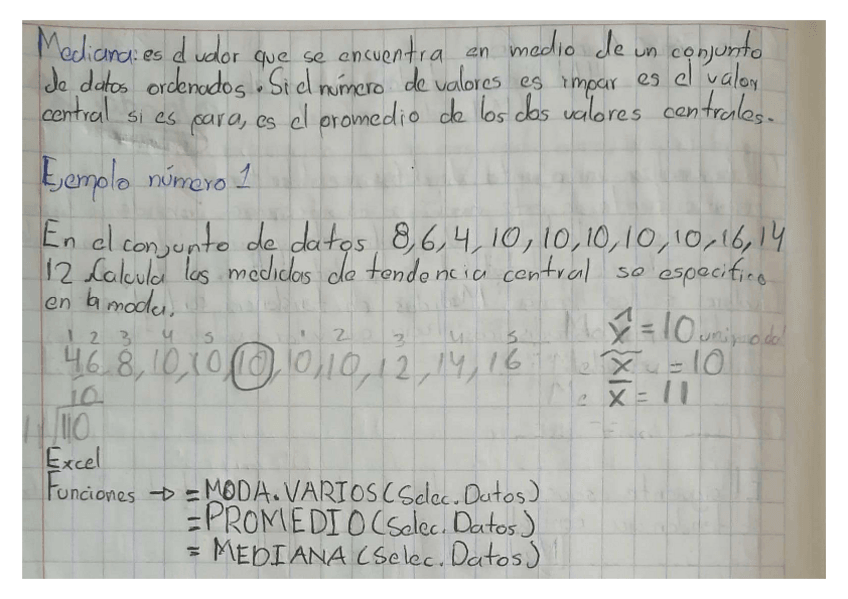 Mediana: es el valor que se encuentra en medio de un conjunto
de datos ordenados. Si el número de valores es impar es el valor
central si es para, es el promedio de los dos valores centrales.
Ejemplo número 1
En el conjunto de datos 8, 6, 4, 10, 10, 10, 10, 10, 16, 14
12 Calcula las medidas de tendencia central se especifico
en la moda.
1 2 3 4 5 1 2 3 4 5
4 6 8, 10, 10, 10, 10, 10, 12, 14, 16
x̂ = 10 unimodal
x̃ = 10
x̄ = 11
10
11 110
Excel
Funciones → = MODA.VARIOS (Selec. Datos)
= PROMEDIO (Selec. Datos)
= MEDIANA (Selec. Datos)